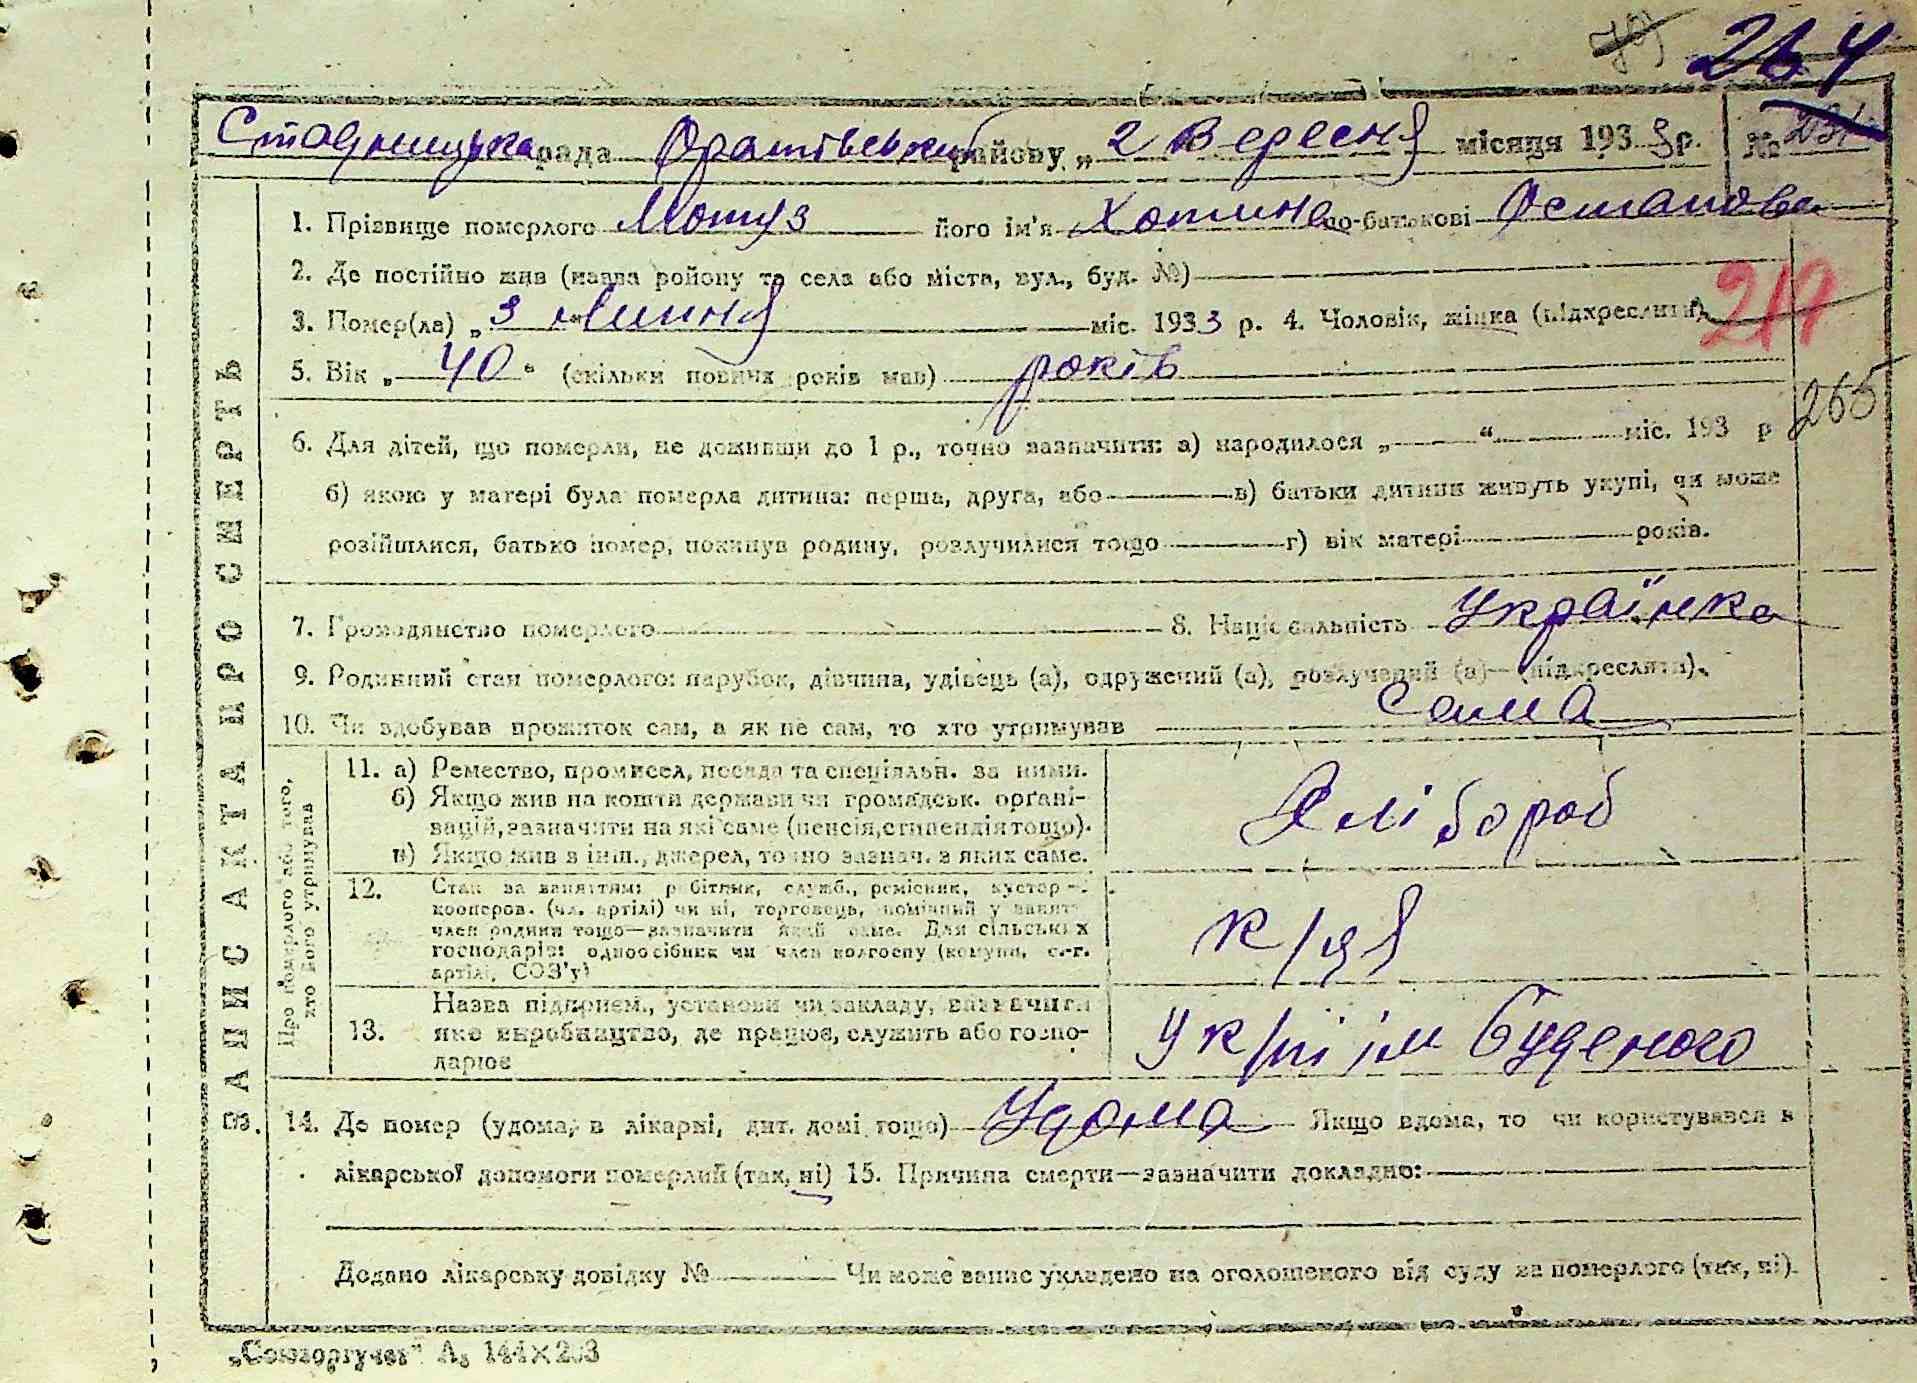 264
Стадницька рада Оратівський району „2 Вересня місяця 1933 р. №
1. Прізвище померлого Мотуз його ім'я Хотина по-батькові Остапова
2. Де постійно жив (назва району та села або міста, вул., буд. №)
219
3. Помер(ла) „3 " Липня міс. 1933 р. 4. Чоловік, жінка (підкреслити)
5. Вік „ 40 " (скільки повних років мав) років
265
6. Для дітей, що померли, не доживши до 1 р., точно зазначити: а) народилося „ " міс. 193 р
б) якою у матері була померла дитина: перша, друга, або в) батьки дитини живуть укупі, чи може
розійшлися, батько помер, покинув родину, розлучилися тощо г) вік матері років.
7. Громадянство померлого 8. Національність Українка
9. Родинний стан померлого: парубок, дівчина, удівець (а), одружений (а), розлучений (а)—(підкреслити).
10. Чи здобував прожиток сам, а як не сам, то хто утримував Сама
ЗАПИС АКТА ПРО СМЕРТЬ
Про померлого або того, хто його утримував
11. а) Ремество, промисел, посада та спеціяльн. за ними.
б) Якщо жив на кошти держави чи громадськ. органі-
зацій, зазначити на які саме (пенсія, стипендія тощо).
в) Якщо жив з інш., джерел, точно зазнач. з яких саме.
Хлібороб
12. Стан за заняттям: робітник, служб., ремісник, кустар-
кооперов. (чл. артілі) чи ні, торговець, помічний у занятт
член родини тощо—зазначити який саме. Для сільських
господарів: одноосібник чи член колгоспу (комуни, с.-г.
артілі, СОЗ'у)
13. Назва підприєм., установи чи закладу, зазначити
яке виробництво, де працює, служить або госпо-
дарює
ім Буденого
14. Де помер (удома, в лікарні, дит. домі тощо) Удома Якщо вдома, то чи користувався з
лікарської допомоги померлий (так, ні) 15. Причина смерти—зазначити докладно:
Додано лікарську довідку № Чи може запис укладено на оголошеного від суду за померлого (так, ні).
„Союзоргучет" А₅ 144×203